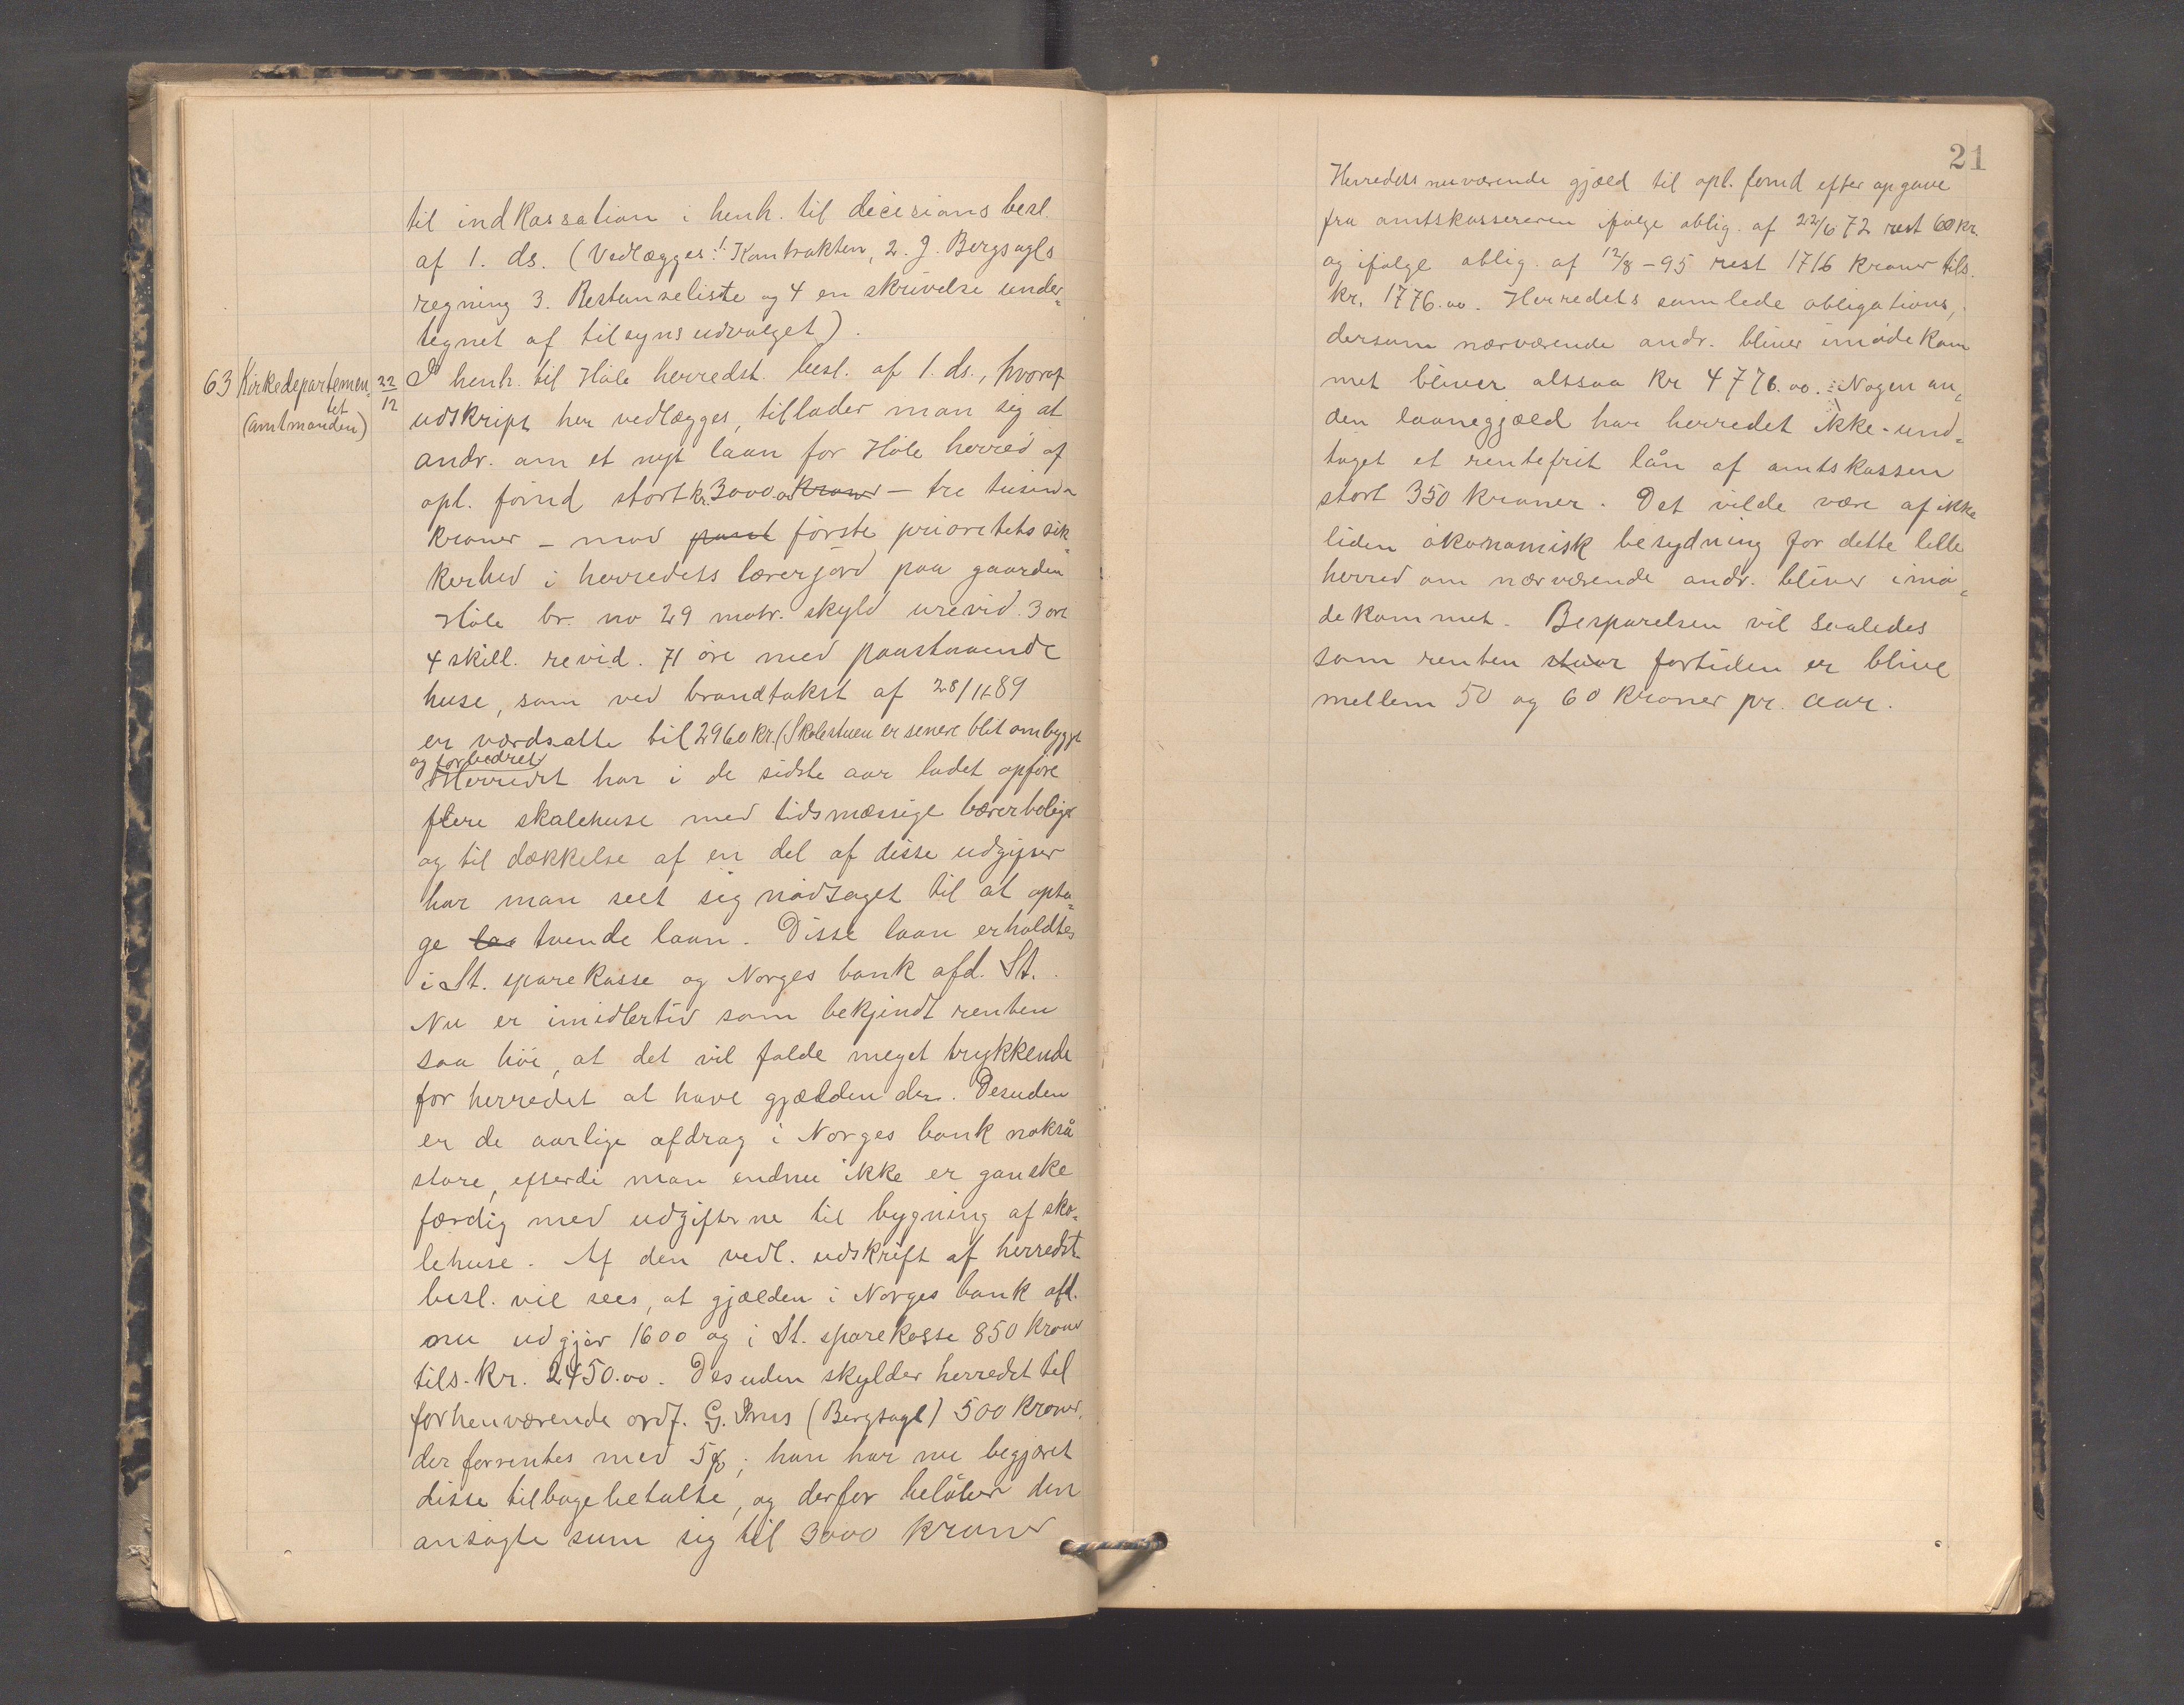 til indkassation i henh. til decisions besl.
af 1. ds. (Vedlægges: 1. Kontrakten, 2. J. Bergsagls
regning 3. Restanseliste og 4 en skrivelse under-
tegnet af tilsynsudvalget).
63 Kirkedepartemen- 22/12 I henh. til Høle herredst. besl. af 1. ds., hvoraf
tet
(amtmanden)
udskrift her vedlægges, tillader man sig at
andr. om et nyt laan for Høle herred af
opl. fond stort kr. 3000.00 kroner – tre tusinde
kroner – mod pant første prioritets sik-
kerhed i herredets lærerjord paa gaarden
Høle br. no 29 matr. skyld urevid. 3 ort
4 skill. revid. 71 øre med paastaaende
huse, som ved brandtakst af 28/11 89
er værdsatte til 2960 kr. (Skolestuen er senere blit ombygt
og forbedret)
Herredet har i de sidste aar ladet opføre
flere skolehuse med tidsmæssige lærerbolige
og til dækkelse af en del af disse udgifter
har man seet sig nødsaget til at opta-
ge laa tvende laan. Disse laan erholdtes
i St. sparekasse og Norges bank afd. St.
Nu er imidlertid som bekjendt renten
saa høi, at det vil falde meget trykkende
for herredet at have gjælden der. Desuden
er de aarlige afdrag i Norges bank nokså
store, efterdi man endnu ikke er ganske
færdig med udgifterne til bygning af sko-
lehuse. Af den vedl. udskrift af herredst.
besl. vil sees, at gjælden i Norges bank afd.
nu udgjør 1600 og i St. sparekasse 850 kroner
tils. kr. 2450.00. Desuden skylder herredet til
forhenværende ordf. G. Ims (Bergsagl) 500 kroner,
der forrentes med 5%; han har nu begjæret
disse tilbagebetalte, og derfor beløber den
ansøgte sum sig til 3000 kroner
21
Herredets nuværende gjæld til opl. fond efter opgave
fra amtskassereren ifølge oblig. af 22/6 72 rest 60 kr.
og ifølge oblig. af 12/8 – 95 rest 1716 kroner tils.
kr. 1776.00. Herredets samlede obligations,
dersom nærværende andr. bliver imødekom
met bliver altsaa kr 4776.00. Nogen an-
den laanegjæld har herredet ikke - und-
taget et rentefrit lån af amtskassen
stort 350 kroner. Det vilde være af ikke
liden økonomisk betydning for dette lille
herred om nærværende andr. bliver imø-
dekommet. Besparelsen vil saaledes
som renten staar fortiden er blive
mellem 50 og 60 kroner pr. aar.